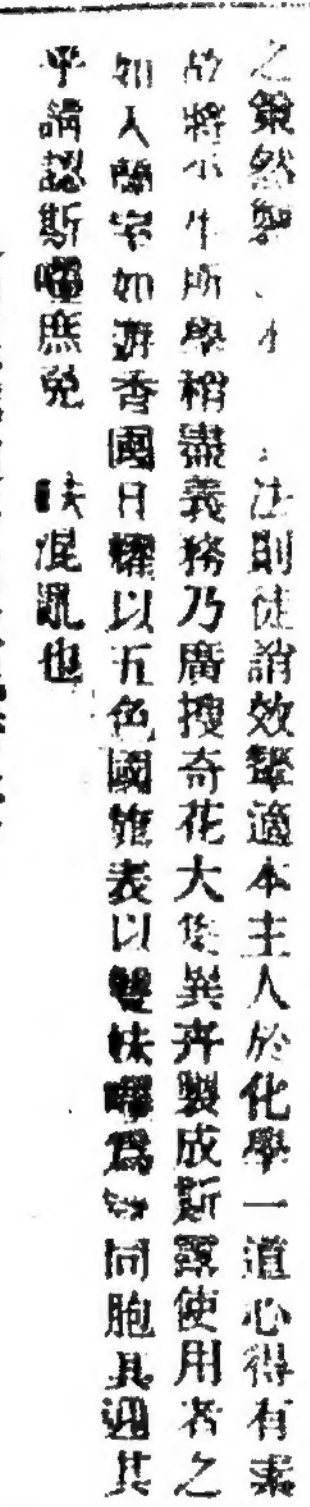 之策然製法則徒誚效顰適本主人於化學一道心得有素
故將生所學稍盡義務乃廣搜奇花大集異卉製成斯露使用者之
如入蘭室如遊香國日耀以五色國旗表以雙妹嚜爲同胞其迎其
乎請認斯嚜庶免混亂也